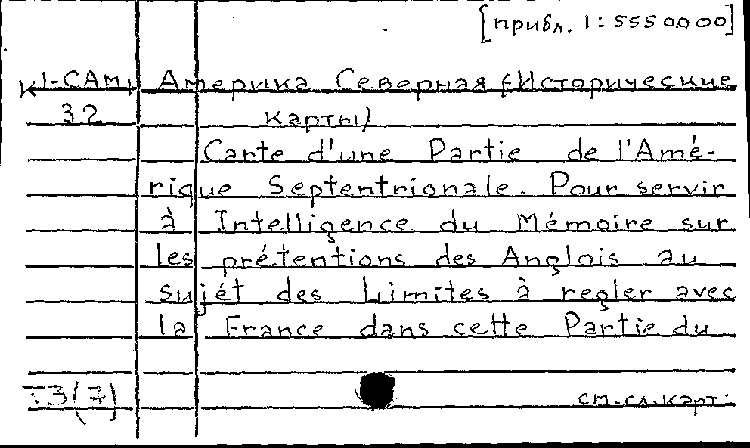 [прибл. 1:5550000]
К1-САМ Америка Северная (Исторические
32 карты)
Carte d'une Partie de l'Amé-
rique Septentrionale. Pour servir
à Intelligence du Mémoire sur
les prétentions des Anglois au
sujét des Limites à regler avec
la France dans cette Partie du
T3(7) см.сл.карт.